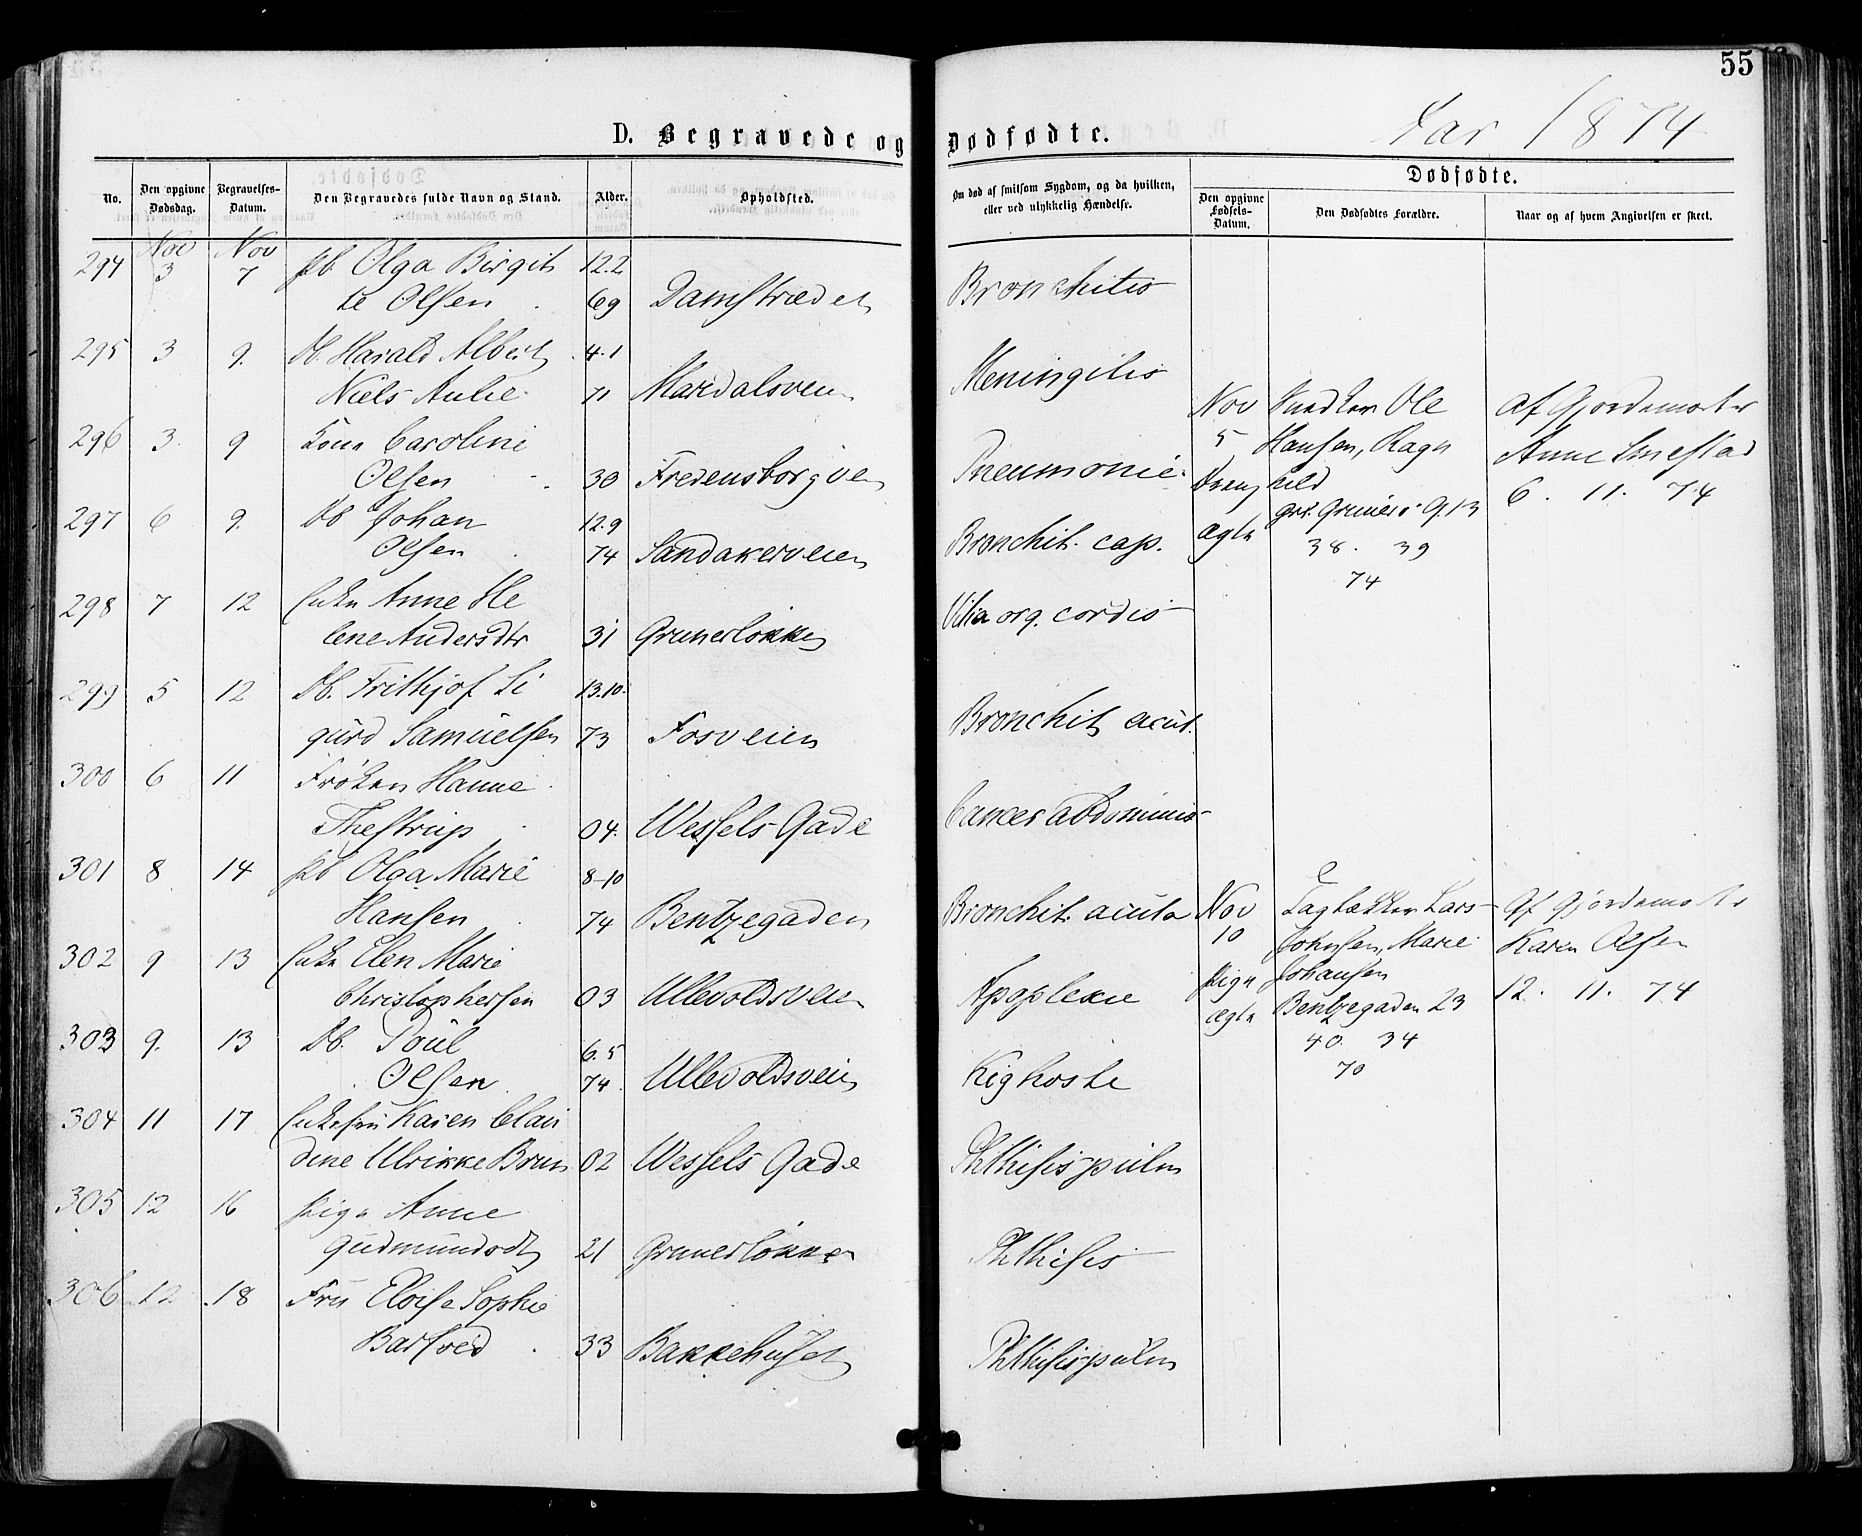 55
D. Begravede og Dødfødte.
Aar 1874
No.
Den opgivne Dødsdag.
Begravelses-Datum.
Den Begravedes fulde Navn og Stand.
Alder.
Opholdsted.
Om død af smitsom Sygdom, og da hvilken,
eller ved ulykkelig Hændelse.
Dødfødte.
Den opgivne Fødsels-Datum.
Den Dødfødtes Forældre.
Naar og af hvem Angivelsen er skeet.
Nov Nov
294 3 7 Pb. Olga Birgit 12.2
te Olsen 69 Damstrædet Bronchitis
295 3 9. Db. Harald Albert 4.1
Niels Aulie 71 Maridalsveien Meningitis
296 3. 9 Kone Caroline
Olsen 30 Fredensborgvei Pneumonie
297 6 9. Db Johan 12.9
Olsen 74 Sandakerveien Bronchit. cap.
298 7 12 Enke Anne He
lene Andersdtr 31 Grunerløkken Vitia org. cordis
299 5 12 Db. Frithjof Si 13.10.
gurd Samuelsen 73 Fosveien Bronchit acut.
300 6 11 Frøken Hanne
Thestrup 04. Wessels Gade Cancer abdominis
301 8 14 Pb Olga Marie 8-10
Hansen 74 Bentzegaden Bronchit. acuta
302 9 13 Enke Elen Marie
Christophersen 03 Ullevoldsveien Apoplexie
303 9. 13 Db. Poul 6.5
Olsen 74. Ullevoldsveien Kighoste
304 11 17 Enkefru Karen Clau
dine Ulrikke Brun 02 Wessels Gade Phthisis pulm
305 12 16 Pige Anne
Gudmundsdt 21 Grunerløkken Phthisis
306 12 18 Fru Eloise Sophie
Barfoed 33 Bakkehuset Phthisis pulm
Nov Snedker Ole af Gjordemoder
5 Hansen, Ragn Anne Smestad
Dreng hild 6. 11. 74
ægte Grüners G. 13
38. 39
74
Nov Taglækker Lars Af Gjordemoder
10 Johnsen, Marie Karen Olsen
Pige Johansen 12. 11. 74
ægte Bentzegaden 23
40. 34
70